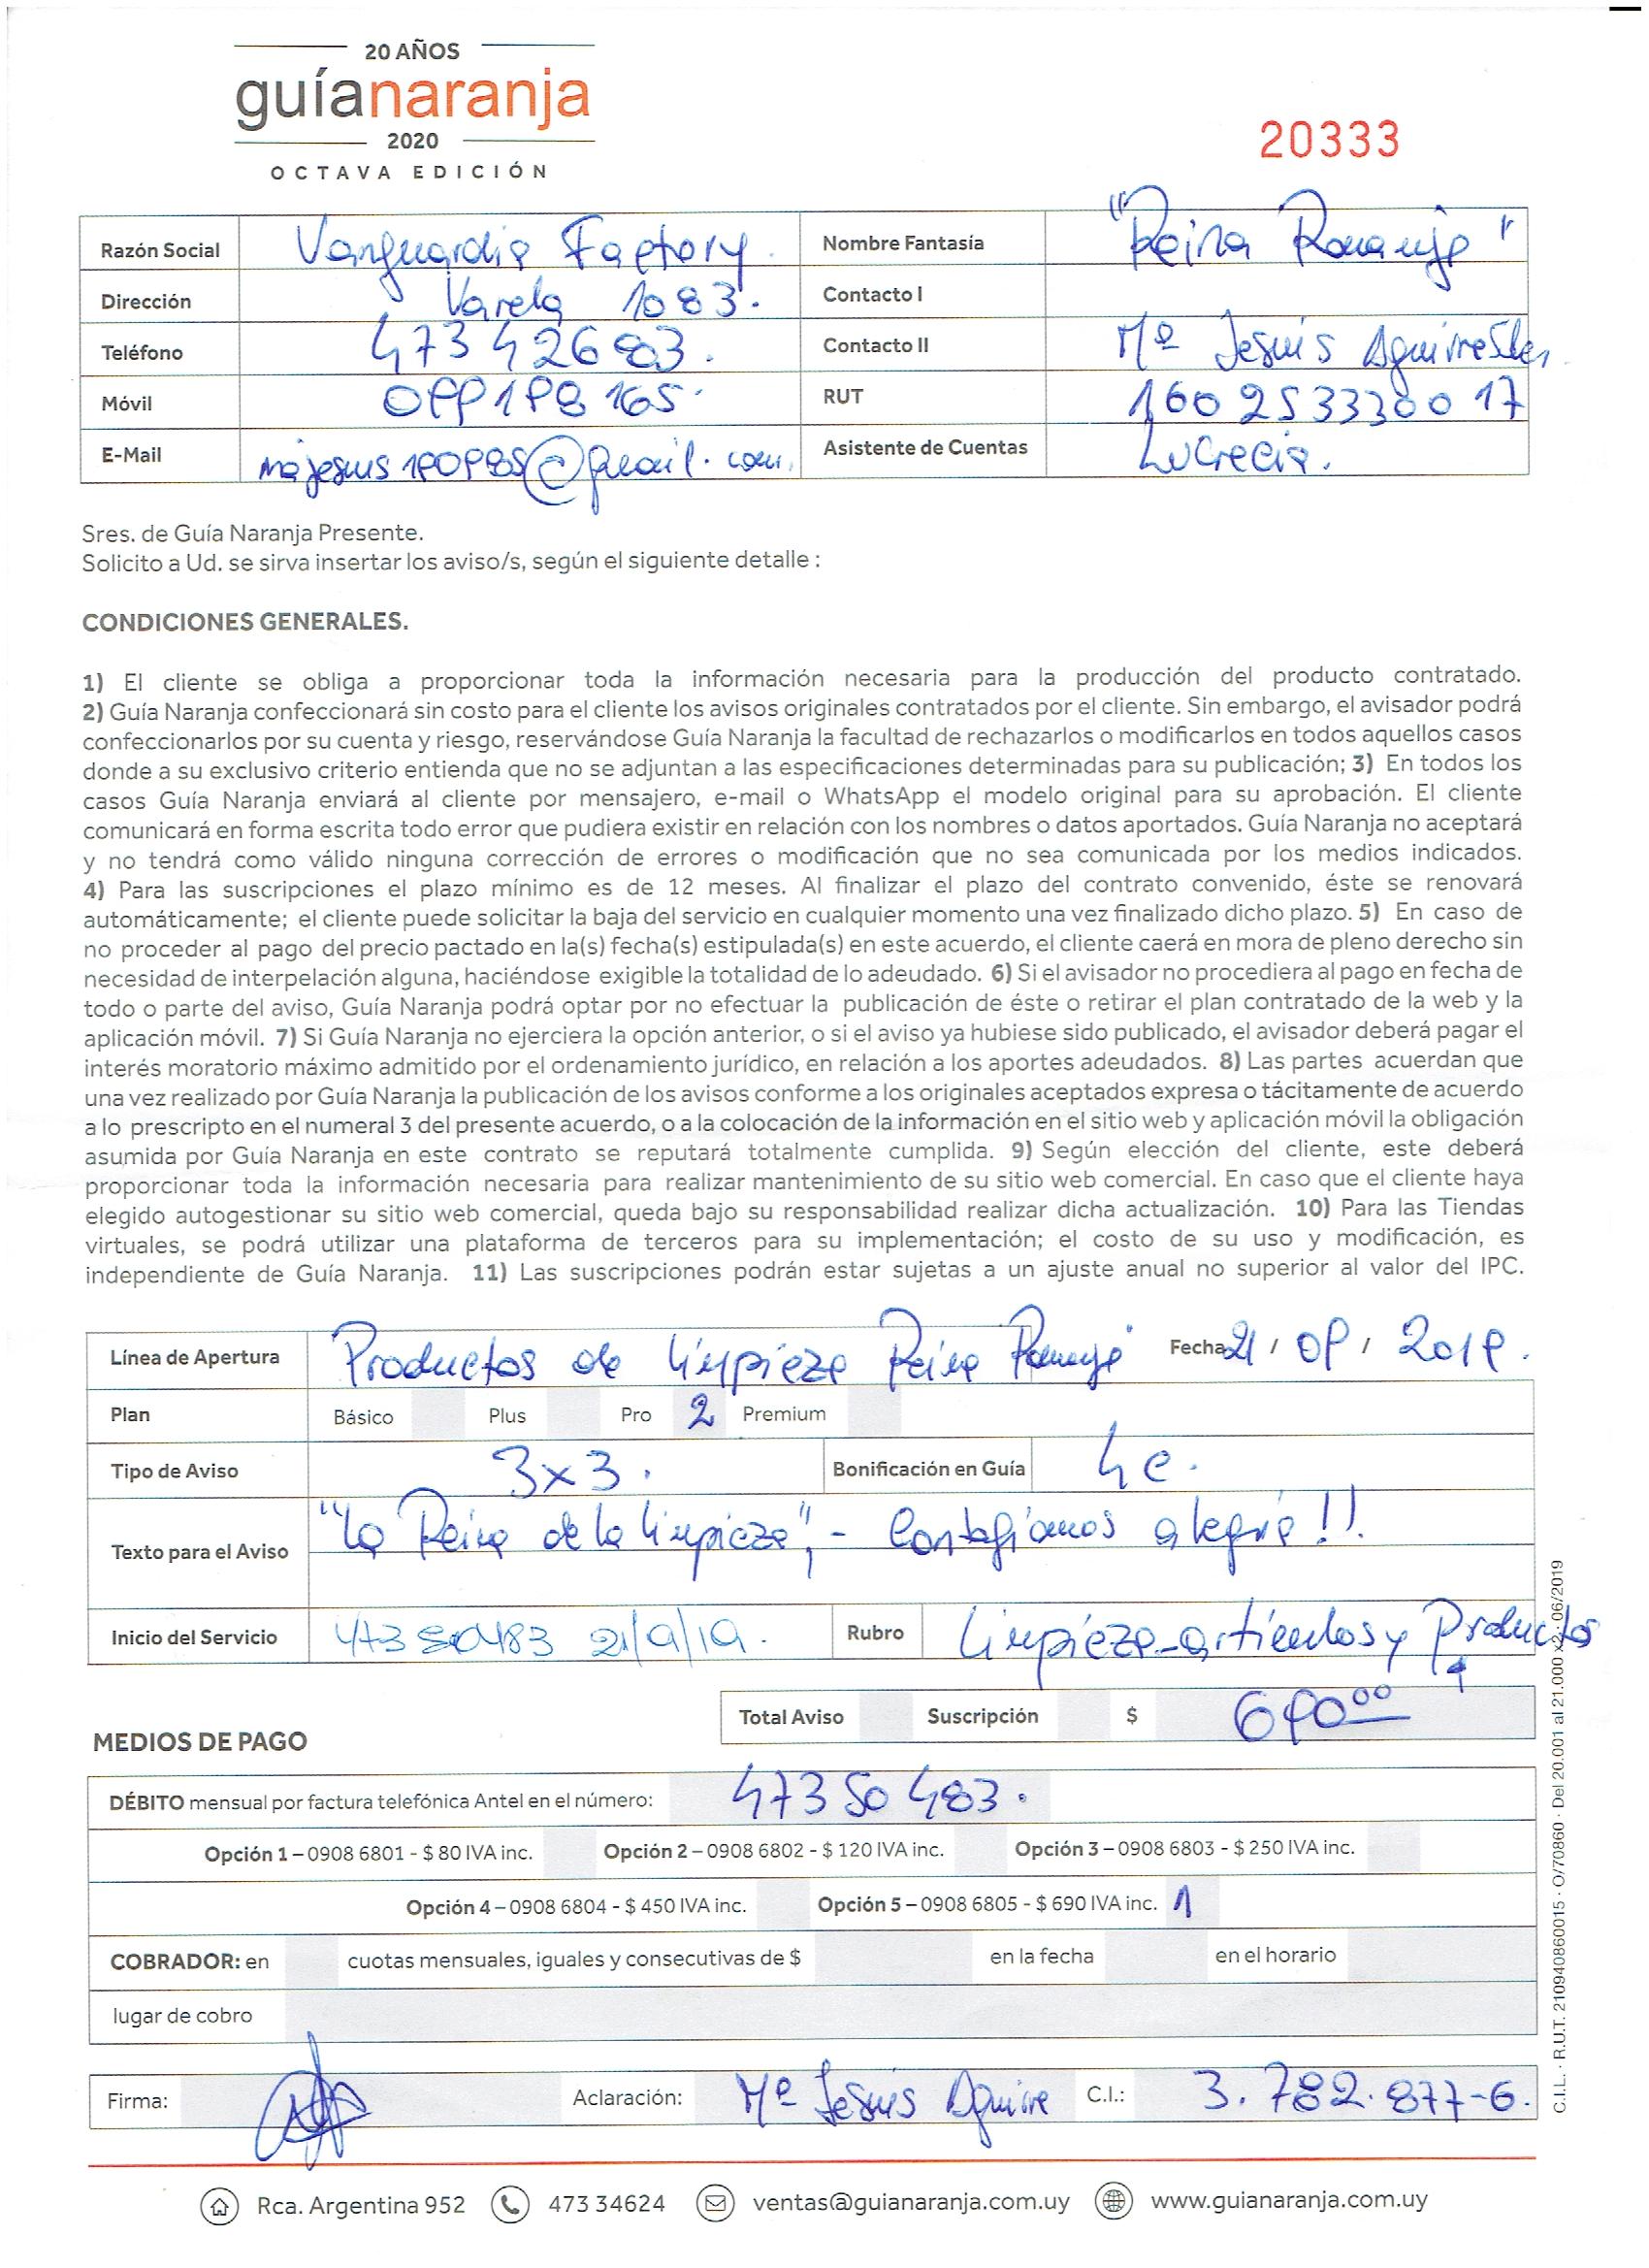 20 AÑOS
guíanaranja
2020
OCTAVA EDICIÓN
20333
Razón Social Vanguardia Factory. Nombre Fantasía "Reina Ronanja"
Dirección Varela 1083. Contacto I
Teléfono 473 42683. Contacto II Mª Jesús Aguirre
Móvil 099198165. RUT 160253330017
E-Mail majesus190985@gmail.com. Asistente de Cuentas Lucrecia.
Sres. de Guía Naranja Presente.
Solicito a Ud. se sirva insertar los aviso/s, según el siguiente detalle :
CONDICIONES GENERALES.
1) El cliente se obliga a proporcionar toda la información necesaria para la producción del producto contratado.
2) Guía Naranja confeccionará sin costo para el cliente los avisos originales contratados por el cliente. Sin embargo, el avisador podrá
confeccionarlos por su cuenta y riesgo, reservándose Guía Naranja la facultad de rechazarlos o modificarlos en todos aquellos casos
donde a su exclusivo criterio entienda que no se adjuntan a las especificaciones determinadas para su publicación; 3) En todos los
casos Guía Naranja enviará al cliente por mensajero, e-mail o WhatsApp el modelo original para su aprobación. El cliente
comunicará en forma escrita todo error que pudiera existir en relación con los nombres o datos aportados. Guía Naranja no aceptará
y no tendrá como válido ninguna corrección de errores o modificación que no sea comunicada por los medios indicados.
4) Para las suscripciones el plazo mínimo es de 12 meses. Al finalizar el plazo del contrato convenido, éste se renovará
automáticamente; el cliente puede solicitar la baja del servicio en cualquier momento una vez finalizado dicho plazo. 5) En caso de
no proceder al pago del precio pactado en la(s) fecha(s) estipulada(s) en este acuerdo, el cliente caerá en mora de pleno derecho sin
necesidad de interpelación alguna, haciéndose exigible la totalidad de lo adeudado. 6) Si el avisador no procediera al pago en fecha de
todo o parte del aviso, Guía Naranja podrá optar por no efectuar la publicación de éste o retirar el plan contratado de la web y la
aplicación móvil. 7) Si Guía Naranja no ejerciera la opción anterior, o si el aviso ya hubiese sido publicado, el avisador deberá pagar el
interés moratorio máximo admitido por el ordenamiento jurídico, en relación a los aportes adeudados. 8) Las partes acuerdan que
una vez realizado por Guía Naranja la publicación de los avisos conforme a los originales aceptados expresa o tácitamente de acuerdo
a lo prescripto en el numeral 3 del presente acuerdo, o a la colocación de la información en el sitio web y aplicación móvil la obligación
asumida por Guía Naranja en este contrato se reputará totalmente cumplida. 9) Según elección del cliente, este deberá
proporcionar toda la información necesaria para realizar mantenimiento de su sitio web comercial. En caso que el cliente haya
elegido autogestionar su sitio web comercial, queda bajo su responsabilidad realizar dicha actualización. 10) Para las Tiendas
virtuales, se podrá utilizar una plataforma de terceros para su implementación; el costo de su uso y modificación, es
independiente de Guía Naranja. 11) Las suscripciones podrán estar sujetas a un ajuste anual no superior al valor del IPC.
Línea de Apertura Productos de limpieza Reina Ronanja Fecha 21 / 09 / 2019.
Plan Básico Plus Pro 2 Premium
Tipo de Aviso 3x3. Bonificación en Guía 4c.
Texto para el Aviso "La Reina de la limpieza", - Contagiamos alegría!!
Inicio del Servicio 473 50483 21/9/19. Rubro Limpieza-artículos y Productos
Total Aviso Suscripción $ 690⁰⁰
MEDIOS DE PAGO
DÉBITO mensual por factura telefónica Antel en el número: 473 50 483.
Opción 1 – 0908 6801 - $ 80 IVA inc. Opción 2 – 0908 6802 - $ 120 IVA inc. Opción 3 – 0908 6803 - $ 250 IVA inc.
Opción 4 – 0908 6804 - $ 450 IVA inc. Opción 5 – 0908 6805 - $ 690 IVA inc. 1
COBRADOR: en cuotas mensuales, iguales y consecutivas de $ en la fecha en el horario
lugar de cobro
Firma: Aclaración: Mª Jesús Aguirre C.I.: 3.782.877-6.
Rca. Argentina 952 473 34624 ventas@guianaranja.com.uy www.guianaranja.com.uy
C.I.L. · R.U.T. 210940860015 · O/70860 · Del 20.001 al 21.000 x2 · 06/2019